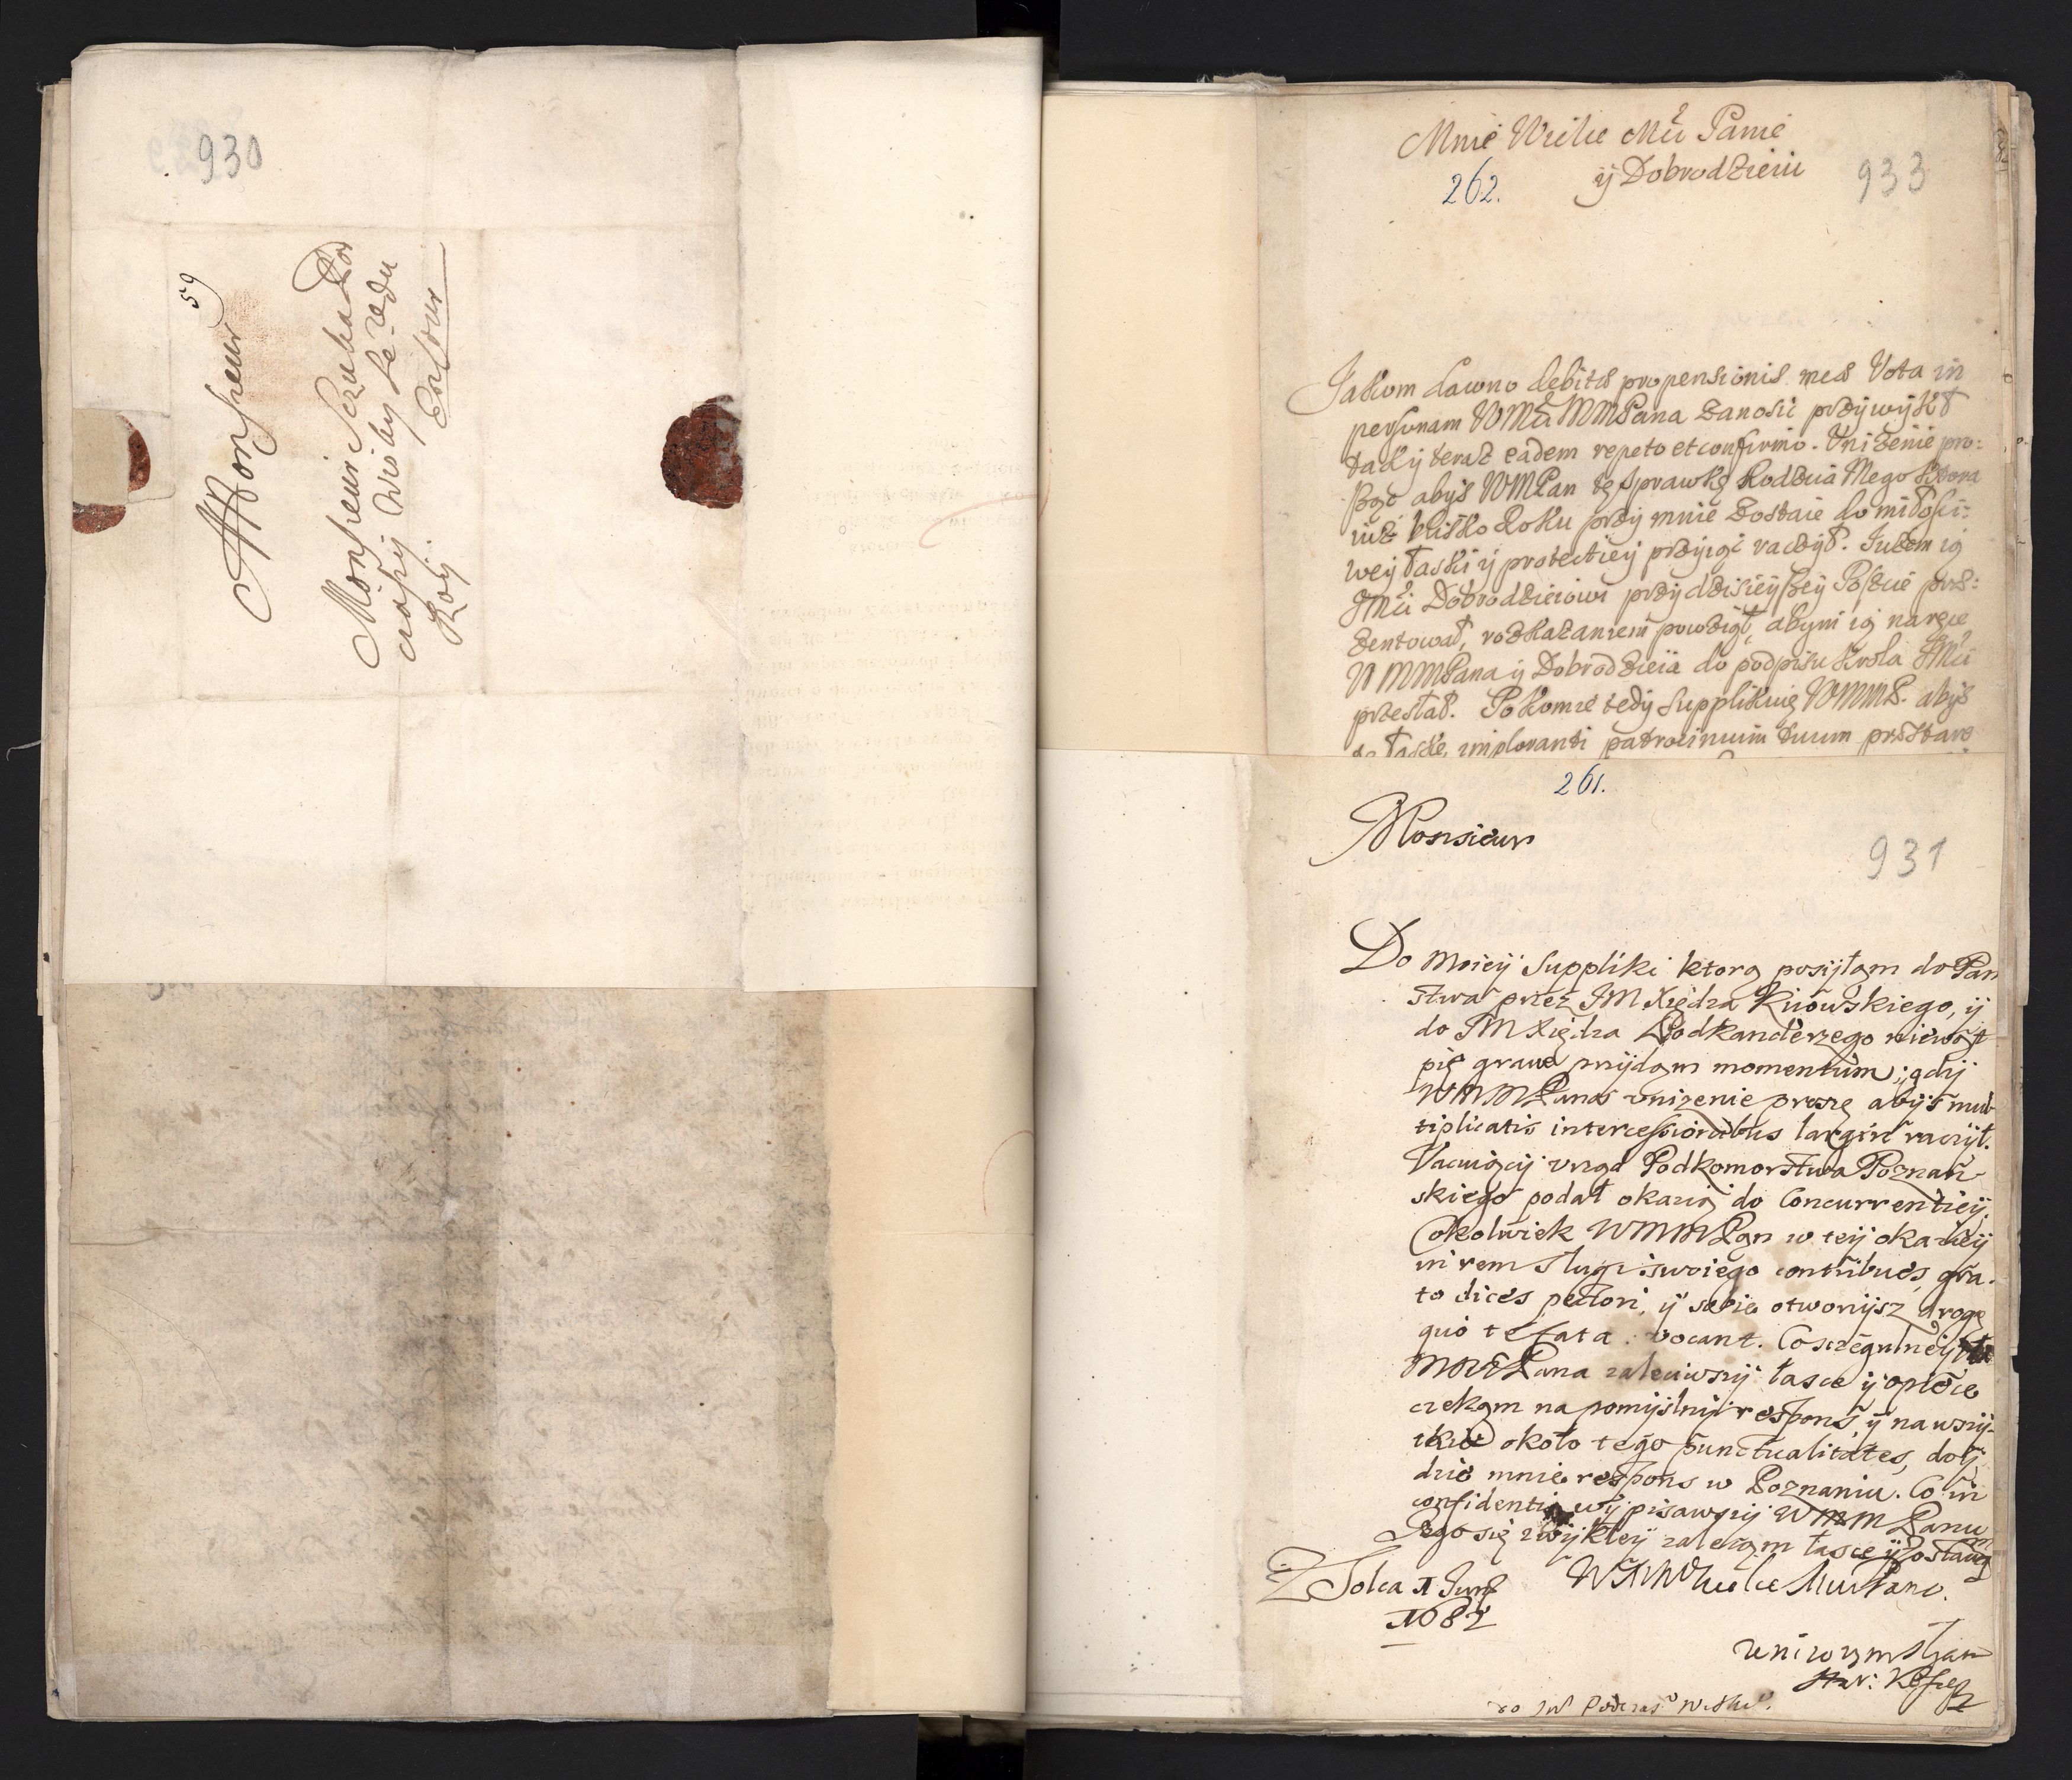 930
59
Monsieur
Monsieur Sczuka
crasny
Roÿ
en Cour
Mnie Wielce Mći Panie
ÿ Dobrodzieiu
262.
933
Jakom dawno debitæ propensionis meæ Vota in
personam WMći MMPana zanosić przÿwÿkł
tak ÿ teraz eadem repeto et confirmo. Vniżenie pro:
szę abÿś WMPan tę sprawkę Rodzica Mego ktora
iuż blisko Roku przÿ mnie zostaie do miłości:
weÿ łaski ÿ protectieÿ przÿiąć raczÿł. Iużem ią
JMći Dobrodzieiowi przÿ dzisieÿszeÿ Poszcie præ:
zentował, rozkazaniem powziął, abÿm ią na ręce
W MMPana ÿ Dobrodzieia do podpisu Krola JMći
przesłał. Pokornie tedÿ supplikuię WMMP. abÿś
łasce, imploranti patrocinium tuum præstare
261.
Monsieur
931
Do moieÿ Suppliki ktorą posÿłam do Pan
stwa przez JM Xiędza Kiiowskiego, ÿ
do JM Xiędza Podkanclerzego niewąt
pię grave przÿdam momentum; gdÿ
WMMPana vniżenie proszę abÿś mul
tiplicatis intercessionibus largiri raczÿł.
Vacuiącÿ vrząd Podkomorstwa Poznań
skiego podał okazią do Concurrentieÿ.
Cokolwiek WMMPan w teÿ okazieÿ
in rem sługi swoiego contribues, gra
to dices pectori, ÿ sobie otworzÿsz drogę
quo te fata vocant. Co szczegulneÿ
MMPana zaleciwszÿ łasce ÿ opiece
czekam na pomÿslnÿ respons, ÿ na wszÿ
tkie około tego punctualitates, doÿ
dzie mnie respons w Poznaniu. Co in
confidentia wÿpisawszÿ WMM Panu
Jego się zwÿkłeÿ zalecam łasce ÿ zostaię
Z Solca 1 Junÿ
1682
WMMWielce Mći Pana
uniżonym sługą